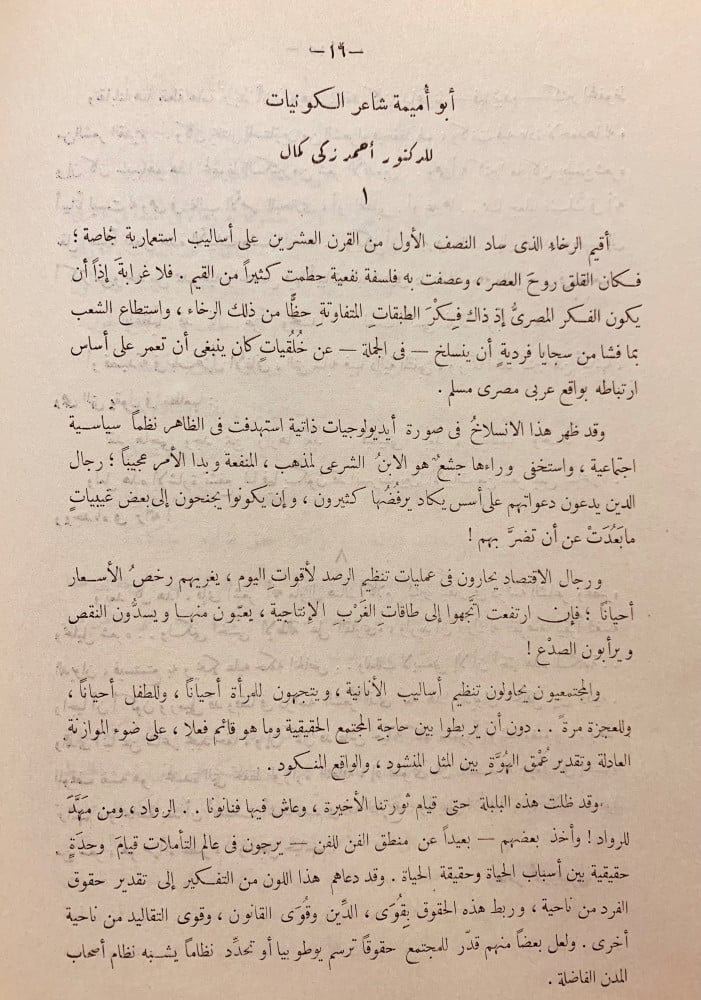 —١٦—
أبو أُميمة شاعر الكونيات
للدكتور أحمد زكى كمال
١
أقيم الرخاء الذى ساد النصف الأول من القرن العشرين على أساليب استعمارية خاصة ؛
فكان القلق روحَ العصر ، وعصفت به فلسفة نفعية حطمت كثيراً من القيم . فلا غرابةَ إذاً أن
يكون الفكر المصرىُّ إذ ذاك فِكْرَ الطبقاتِ المتفاوتةِ حظًّا من ذلك الرخاء ، واستطاع الشعب
بما فشا من سجايا فرديةٍ أن ينسلخ — فى الجملة — عن خُلُقياتٍ كان ينبغى أن تعمر على أساس
ارتباطه بواقع عربى مصرى مسلم .
وقد ظهر هذا الانسلاخُ فى صورة أيديولوجيات ذاتية استهدفت فى الظاهر نظماً سياسية
اجتماعية ، واستخفى وراءها جشعٌ هو الابنُ الشرعى لمذهب ، المنفعة وبدا الأمر عجيباً ؛ رجال
الدين يدعون دعواتهم على أسس يكاد يرفُضُها كثيرون ، وإن يكونوا يجنحون إلى بعض غيبياتٍ
مابَعُدَتْ عن أن تضرَّ بهم !
ورجال الاقتصادِ يحارون فى عمليات تنظيم الرصد لأقوات اليوم ، يغريهم رخصُ الأسعار
أحياناً ؛ فإن ارتفعت اتَّجهوا إلى طاقاتِ الغَرْبِ الإنتاجية ، يعبّون منها ويسدُّون النقص
ويرأبون الصدْع !
والمجتمعيون يحاولون تنظيم أساليب الأنانية ، ويتجهون للمرأة أحياناً ، وللطفل أحياناً ،
وللعجزة مرةً . . دون أن يربطوا بين حاجةِ المجتمع الحقيقية وما هو قائم فعلا ، على ضوء الموازنة
العادلة وتقدير عُمْق الهُوَّةِ بين المثل المنشود ، والواقع المنكود .
وقد ظلت هذه البلبلة حتى قيام ثورتنا الأخيرة ، وعاش فيها فنانونا . . الرواد ، ومن مَهَّدَ
للرواد ! وأخذ بعضهم — بعيداً عن منطق الفن للفن — يرجون فى عالم التأملات قيامَ وحدَةٍ
حقيقية بين أسباب الحياة وحقيقة الحياة . وقد دعاهم هذا اللون من التفكير إلى تقدير حقوق
الفرد من ناحية ، وربط هذه الحقوق بِقُوَى ، الدِّين وقُوَى القانون ، وقوى التقاليد من ناحية
أخرى . ولعل بعضاً منهم قدّر للمجتمع حقوقاً ترسم يوطوبيا أو تحدِّد نظاماً يشبه نظام أصحاب
المدن الفاضلة .